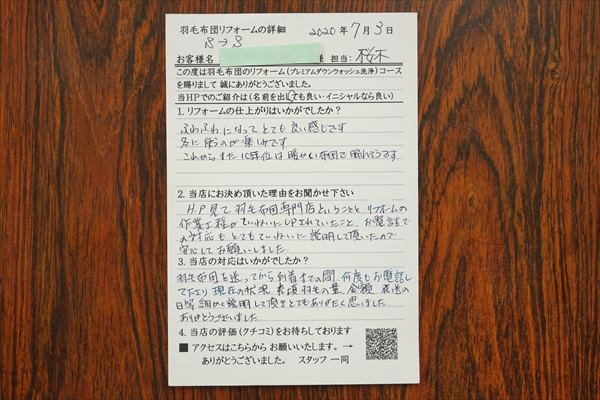 羽毛布団リフォームの詳細 2020年7月3日
S→S
お客様名 様 担当:桜木
この度は羽毛布団のリフォーム(プレミアムダウンウォッシュ洗浄)コース
を賜りまして 誠にありがとうございました。
当HPでのご紹介は(名前を出しても良い・イニシャルなら良い)
1. リフォームの仕上がりはいかがでしたか?
ふわふわになって とても 良い感じです
冬に使うのが楽しみです
これから また 10年位は 暖かい布団で 眠れそうです
2. 当店にお決め頂いた理由をお聞かせ下さい
HP見て 羽毛布団専門店ということと リフォームの
作業工程がていねいにUPされていたこと、お電話で
の対応も とてもていねいに 説明して頂いたので
安心して お願いしました
3. 当店の対応はいかがでしたか?
羽毛布団を送ってから到着までの間 何度もお電話し
て下さり 現在の状況 羽毛の量、金額 発送の
日等 細かく説明して頂き とてもありがたく思いました
ありがとうございました
4. 当店の評価(クチコミ)をお待ちしております
■ アクセスはこちらから お願いいたします。→
ありがとうございました。 スタッフ 一同